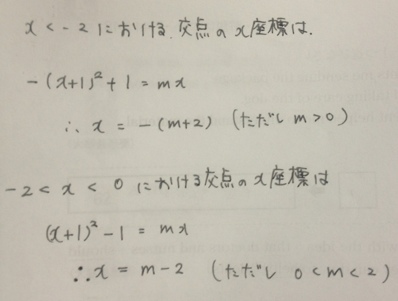 x < -2 における、交点の x座標は.
-(x+1)² + 1 = mx
∴ x = -(m+2) (ただし m > 0)
-2 < x < 0 における交点の x座標は
(x+1)² - 1 = mx
∴ x = m - 2 (ただし 0 < m < 2)